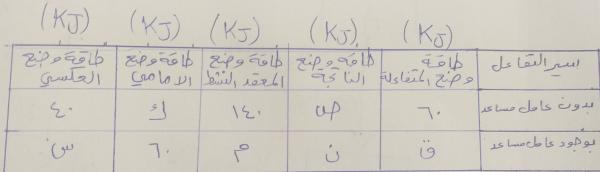 (KJ) (KJ) (KJ) (KJ) (KJ)
سير التفاعل طاقة طاقة وضع طاقة وضع طاقة وضع طاقة وضع
وضع المتفاعلة الناتجة المعقد النشط الامامي العكسي
بدون عامل مساعد ٦٠ ص ١٤٠ ك ٤٠
بوجود عامل مساعد ق ن م ٦٠ س